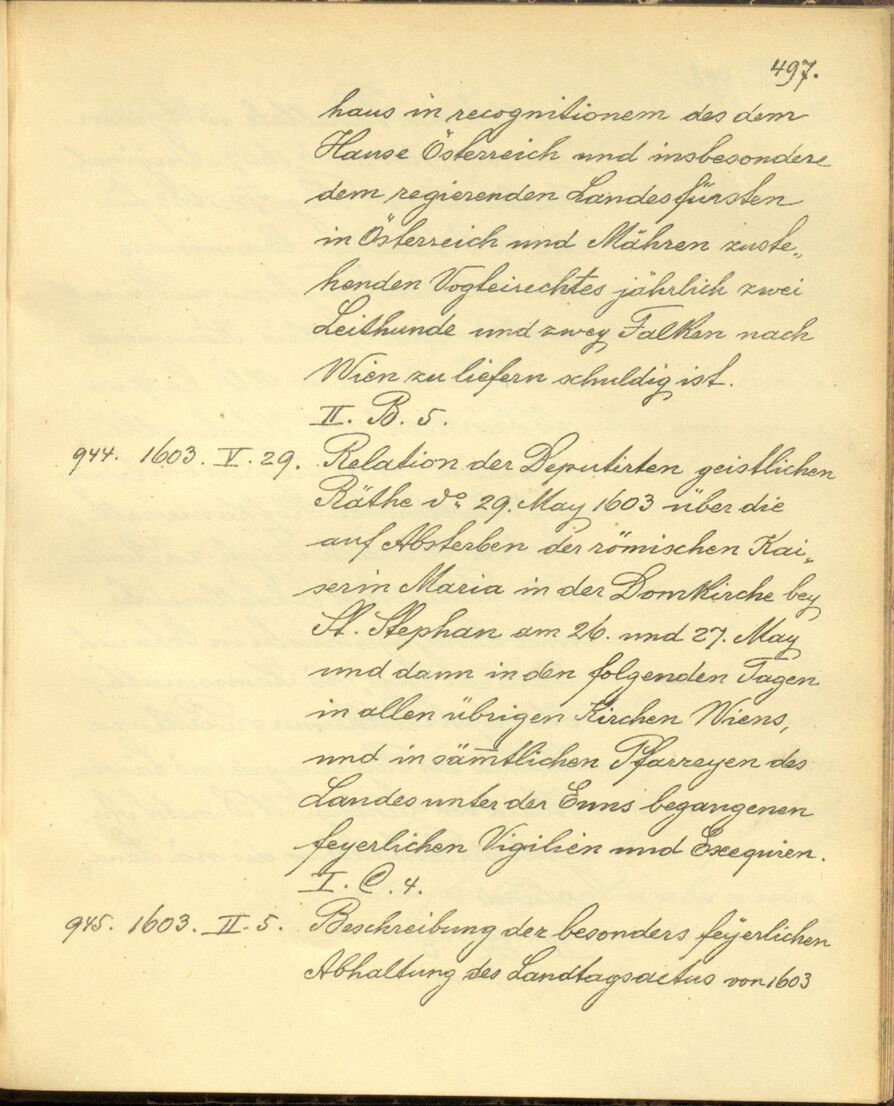 497.
haus in recognitionem des dem
Hause Österreich und insbesondere
dem regierenden Landesfürsten
in Österreich und Mähren zuste„
henden Vogteirechtes jährlich zwei
Leithunde und zwey Falken nach
Wien zu liefern schuldig ist.
II. B. 5.
944. 1603. V. 29. Relation der Deputirten geistlichen
Räthe do: 29. May 1603 über die
auf Absterben der römischen Kai„
serin Maria in der Domkirche bey
St. Stephan am 26. und 27. May
und dann in den folgenden Tagen
in allen übrigen Kirchen Wiens,
und in säm̅tlichen Pfarreyen des
Landes unter der Enns begangenen
feyerlichen Vigilien und Exequien.
I. C. 4.
945. 1603. II. 5. Beschreibung der besonders feyerlichen
Abhaltung des Landtagsactus von 1603